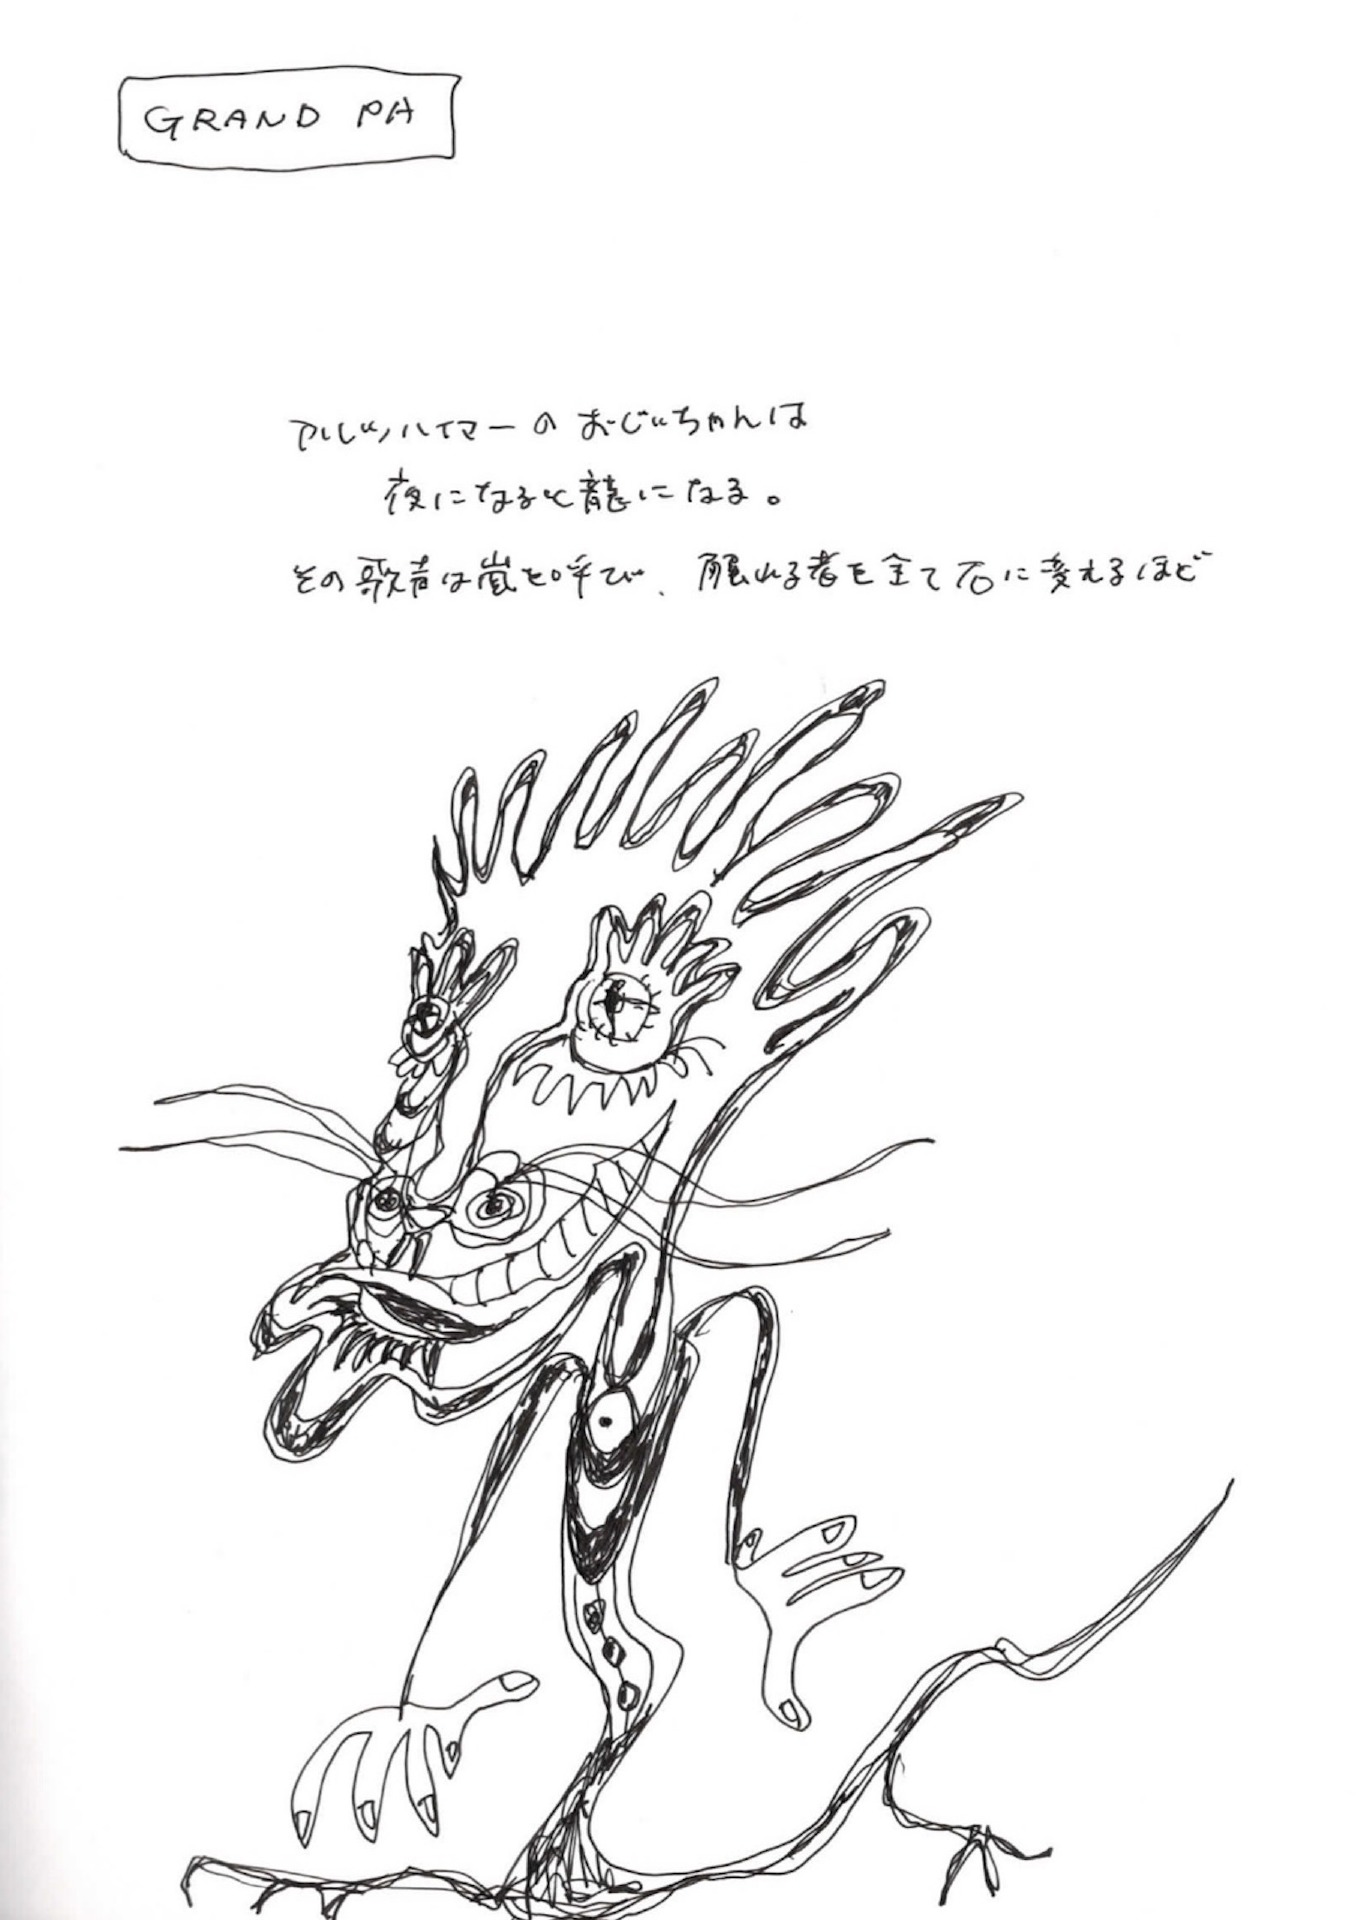 GRAND PA
アルツハイマーのおじいちゃんは
夜になると龍になる。
その歌声は嵐を呼び、触れる者を全て石に変えるほど